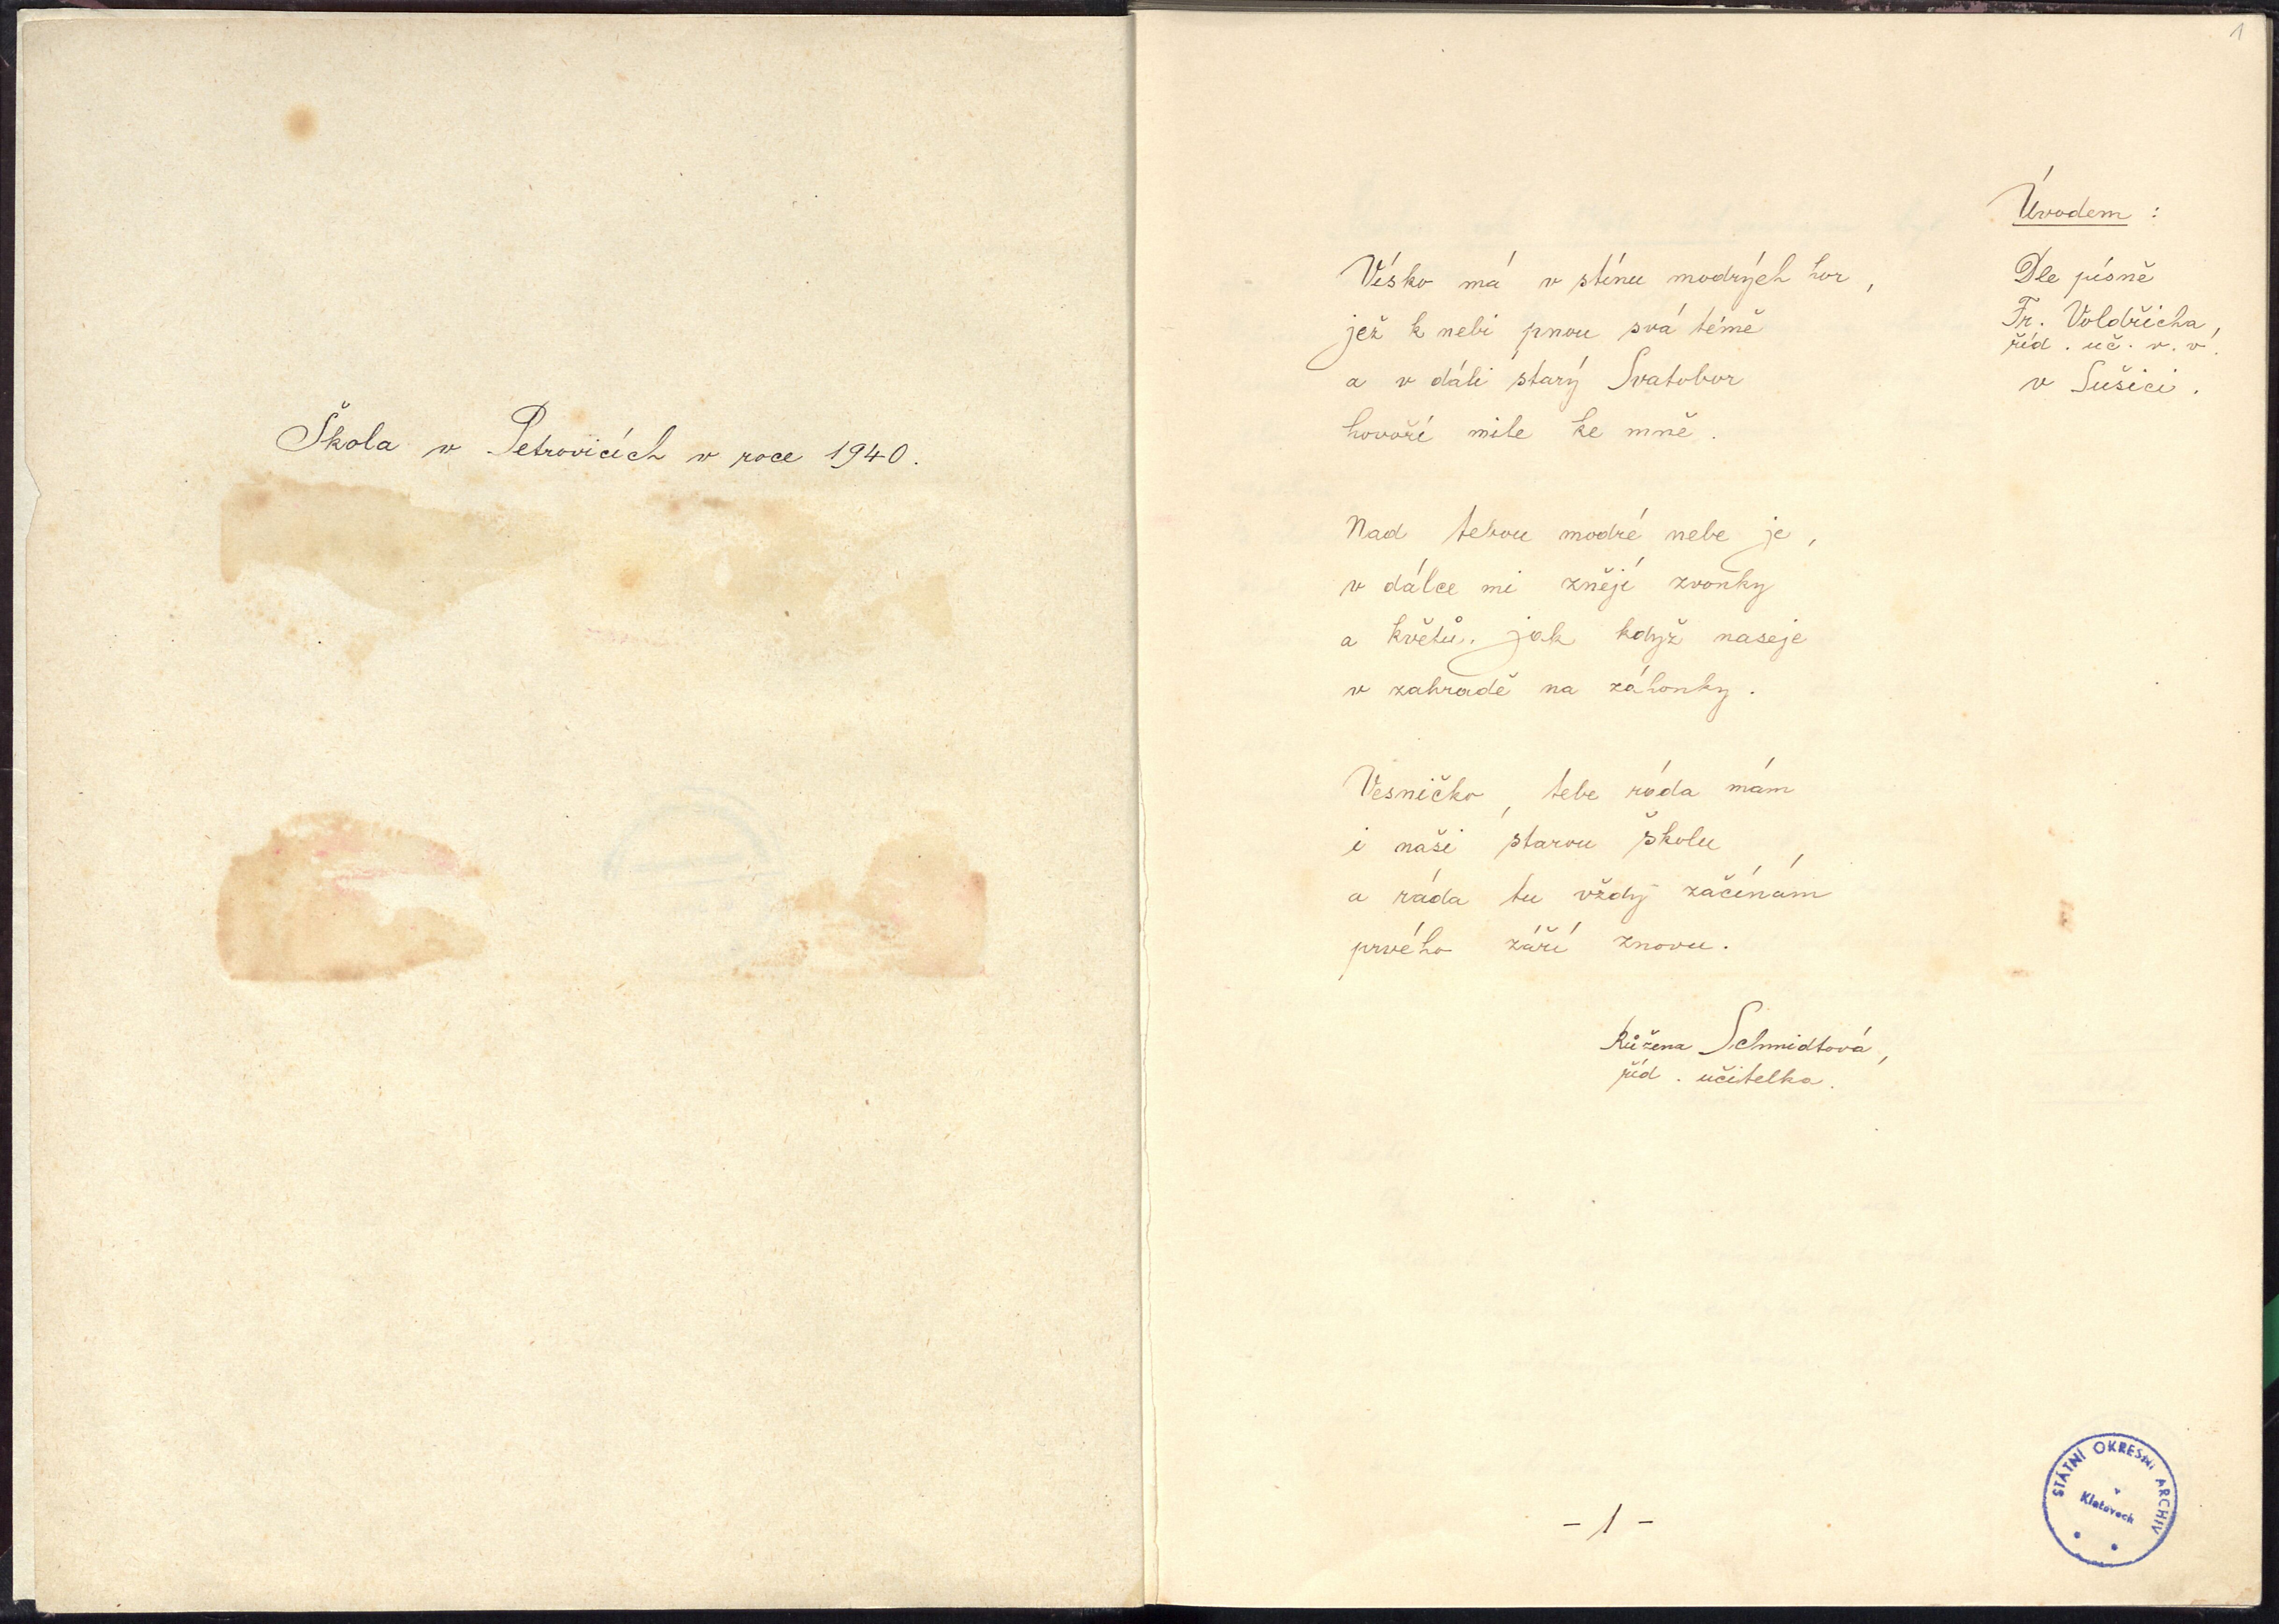 Škola v Petrovicích v roce 1940.
1
Úvodem :
Dle písně
Fr. Voldřicha,
říd. uč. v. v.
v Sušici.
Vísko má v stínu modrých hor,
jež k nebi pnou svá témě
a v dáli starý Svatobor
hovoří mile ke mně.
Nad tebou modré nebe je,
v dálce mi znějí zvonky
a květů. jak když naseje
v zahradě na záhonky.
Vesničko, tebe ráda mám
i naši starou školu
a ráda tu vždy začínám
prvého září znovu.
Růžena Schmidtová,
říd. učitelka.
- 1 -
STÁTNÍ OKRESNÍ ARCHIV
v
Klatovech